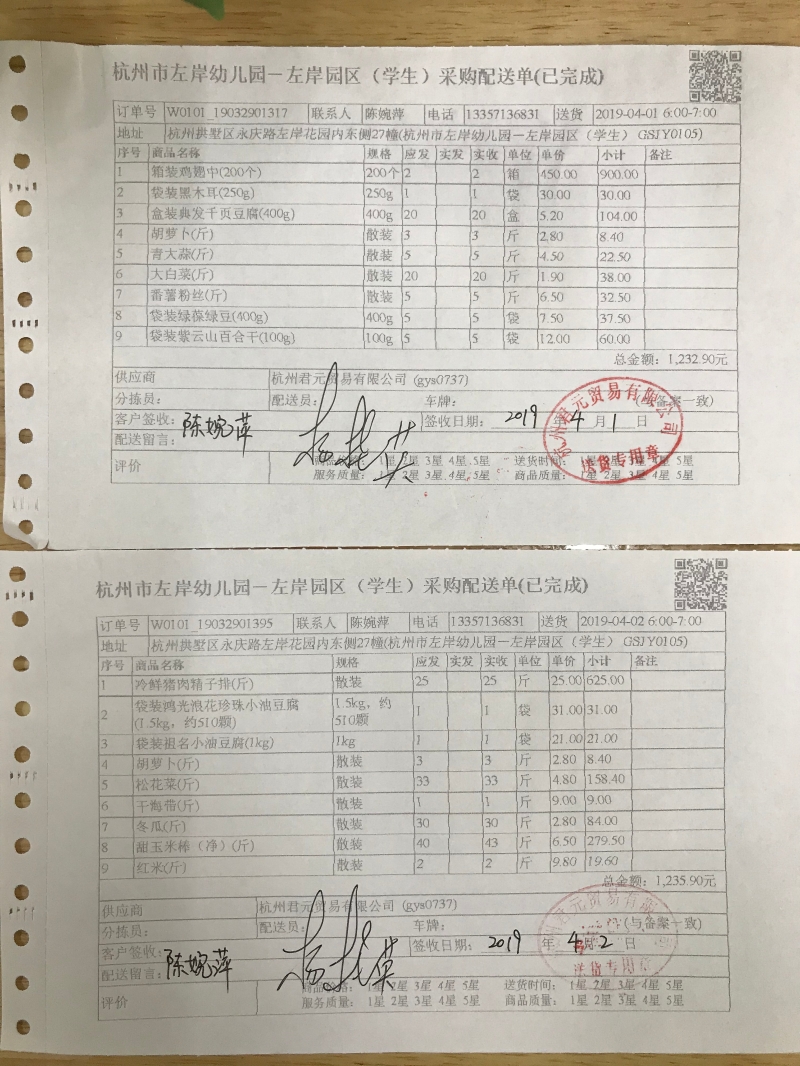 杭州市左岸幼儿园－左岸园区（学生）采购配送单(已完成)
订单号 W0101_19032901317 联系人 陈婉萍 电话 13357136831 送货 2019-04-01 6:00-7:00
地址 杭州拱墅区永庆路左岸花园内东侧27幢(杭州市左岸幼儿园－左岸园区（学生）GSJY0105)
序号 商品名称 规格 应发 实发 实收 单位 单价 小计 备注
1 箱装鸡翅中(200个) 200个 2 2 箱 450.00 900.00
2 袋装黑木耳(250g) 250g 1 1 袋 30.00 30.00
3 盒装典发千页豆腐(400g) 400g 20 20 盒 5.20 104.00
4 胡萝卜(斤) 散装 3 3 斤 2.80 8.40
5 青大蒜(斤) 散装 5 5 斤 4.50 22.50
6 大白菜(斤) 散装 20 20 斤 1.90 38.00
7 番薯粉丝(斤) 散装 5 5 斤 6.50 32.50
8 袋装绿葆绿豆(400g) 400g 5 5 袋 7.50 37.50
9 袋装紫云山百合干(100g) 100g 5 5 袋 12.00 60.00
总金额：1,232.90元
供应商 杭州君元贸易有限公司 (gys0737)
分拣员： 配送员： 车牌： (与备案一致)
客户签收： 陈婉萍 签收日期： 2019 年 4 月 1 日
配送留言：
杭州君元贸易有限公司
送货专用章
评价 商品价格： 1星 2星 3星 4星 5星 送货时间： 1星 2星 3星 4星 5星
服务质量： 1星 2星 3星 4星 5星 商品质量： 1星 2星 3星 4星 5星
杭州市左岸幼儿园－左岸园区（学生）采购配送单(已完成)
订单号 W0101_19032901395 联系人 陈婉萍 电话 13357136831 送货 2019-04-02 6:00-7:00
地址 杭州拱墅区永庆路左岸花园内东侧27幢(杭州市左岸幼儿园－左岸园区（学生）GSJY0105)
序号 商品名称 规格 应发 实发 实收 单位 单价 小计 备注
1 冷鲜猪肉精子排(斤) 散装 25 25 斤 25.00 625.00
2 袋装鸿光浪花珍珠小油豆腐(1.5kg，约510颗) 1.5kg，约510颗 1 1 袋 31.00 31.00
3 袋装祖名小油豆腐(1kg) 1kg 1 1 袋 21.00 21.00
4 胡萝卜(斤) 散装 3 3 斤 2.80 8.40
5 松花菜(斤) 散装 33 33 斤 4.80 158.40
6 干海带(斤) 散装 1 1 斤 9.00 9.00
7 冬瓜(斤) 散装 30 30 斤 2.80 84.00
8 甜玉米棒（净）(斤) 散装 40 43 斤 6.50 279.50
9 红米(斤) 散装 2 2 斤 9.80 19.60
总金额：1,235.90元
供应商 杭州君元贸易有限公司 (gys0737)
分拣员： 配送员： 车牌： (与备案一致)
客户签收： 陈婉萍 签收日期： 2019 年 4 月 2 日
配送留言：
杭州君元贸易有限公司
送货专用章
评价 商品价格： 1星 2星 3星 4星 5星 送货时间： 1星 2星 3星 4星 5星
服务质量： 1星 2星 3星 4星 5星 商品质量： 1星 2星 3星 4星 5星